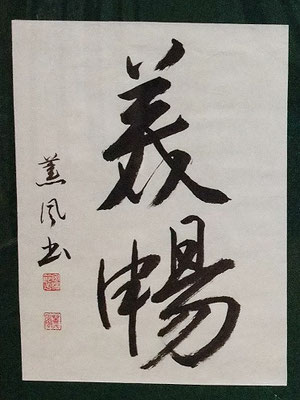 美暢
薫風書